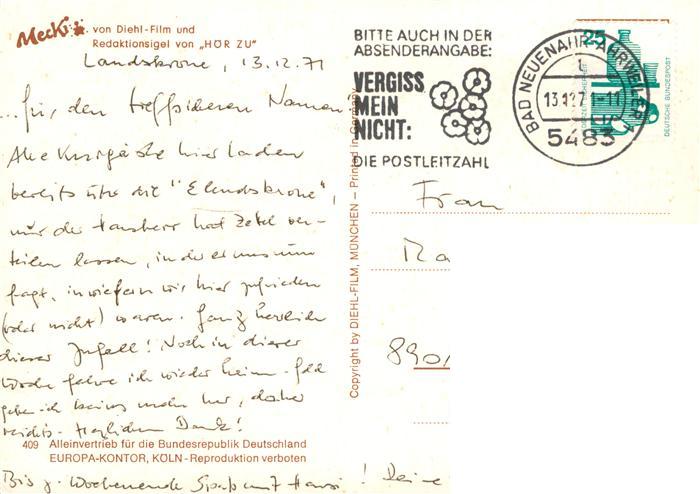 Mecki von Diehl-Film und
Redaktionsigel von „HÖR ZU"
Landskrone, 13.12.71
...für den treffsicheren Namen!
Alle Kurgäste hier lachen
bereits über die "Elendskrone",
nur der Hausherr hat Zettel ver-
teilen lassen, in der er uns nun
fragt, inwiefern wir hier zufrieden
(oder nicht) waren. Ganz herrlich
dieser Zufall! Noch in dieser
Woche fahre ich wieder heim. Geld
gebe ich keins mehr her, daher
nichts. Herzlichen Dank!
409 Alleinvertrieb für die Bundesrepublik Deutschland
EUROPA-KONTOR, KÖLN - Reproduktion verboten
Bis z. Wochenende Spaß mit Hansi! Deine
Copyright by DIEHL-FILM, MÜNCHEN – Printed in Germany
BITTE AUCH IN DER
ABSENDERANGABE:
VERGISS
MEIN
NICHT:
DIE POSTLEITZAHL
BAD NEUENAHR-AHRWEILER 1
13.12.71-11
5483
25
DEUTSCHE BUNDESPOST
Frau
Ma
8901